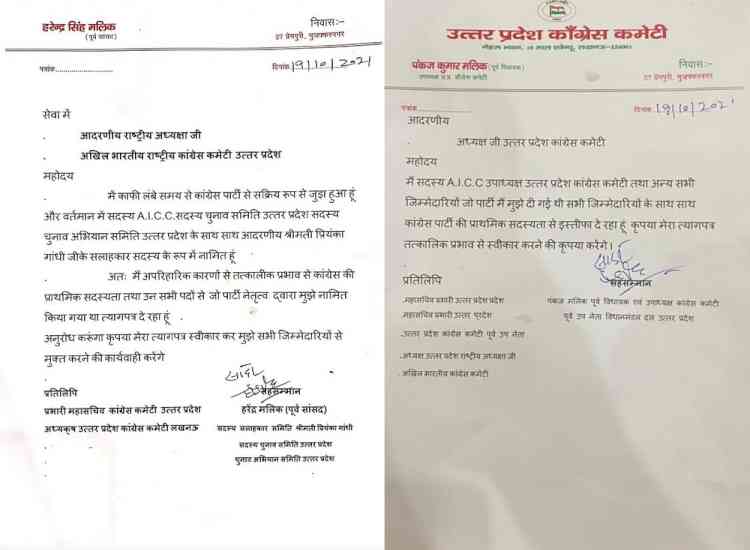 हरेन्द्र सिंह मलिक
(पूर्व सांसद)
निवासः-
27 प्रेमपुरी, मुजफ्फरनगर
पत्रांक....................
दिनांक 19/10/2021
सेवा में
आदरणीय राष्ट्रीय अध्यक्षा जी
अखिल भारतीय राष्ट्रीय कांग्रेस कमेटी उत्तर प्रदेश
महोदय
में काफी लंबे समय से कांग्रेस पार्टी से सक्रिय रूप से जुड़ा हुआ हूं
और वर्तमान में सदस्य A.I.C.C.सदस्य चुनाव समिति उत्तर प्रदेश सदस्य
चुनाव अभियान समिति उत्तर प्रदेश के साथ साथ आदरणीय श्रीमती प्रियंका
गांधी जीके सलाहकार सदस्य के रूप में नामित हूं
अतः में अपरिहारिक कारणों से तत्कालीक प्रभाव से कांग्रेस की
प्राथमिक सदस्यता तथा उन सभी पदों से जो पार्टी नेतृत्व द्वारा मुझे नामित
किया गया था त्यागपत्र दे रहा हूं .
अनुरोध करूंगा कृपया मेरा त्यागपत्र स्वीकार कर मुझे सभी जिम्मेदारियों से
मुक्त करने की कार्यवाही करेंगे
सादर
प्रतिलिपि
सहसम्मान
प्रभारी महासचिव कांग्रेस कमेटी उत्तर प्रदेश
हरेंद्र मलिक (पूर्व सांसद)
अध्यकृष उत्तर प्रदेश कांग्रेस कमेटी लखनऊ
सदस्य सलाहकार समिति श्रीमती प्रियंका गांधी
सदस्य चुनाव समिति उत्तर प्रदेश
चुनाव अभियान समिति उत्तर प्रदेश
उत्तर प्रदेश काँग्रेस कमेटी
पंकज कुमार मलिक (पूर्व विधायक)
निवासः-
27 प्रेमपुरी, मुजफ्फरनगर
पत्रांक....................
दिनांक 19/10/2021
आदरणीय
अध्यक्ष जी उत्तर प्रदेश कांग्रेस कमेटी
महोदय
मैं सदस्य A.I.C.C उपाध्यक्ष उत्तर प्रदेश कांग्रेस कमेटी तथा अन्य सभी
जिम्मेदारियों जो पार्टी में मुझे दी गई थी सभी जिम्मेदारियों के साथ साथ
कांग्रेस पार्टी की प्राथमिक सदस्यता से इस्तीफा दे रहा हूं कृपया मेरा त्यागपत्र
तत्कालिक प्रभाव से स्वीकार करने की कृपया करेंगे।
प्रतिलिपि
सहसम्मान
.महासचिव प्रभारी उत्तर प्रदेश प्रदेश
पंकज मलिक पूर्व विधायक एवं उपाध्यक्ष कांग्रेस कमेटी
.महासचिव प्रभारी उत्तर प्रदेश
पूर्व उप नेता विधानमंडल दल उत्तर प्रदेश
.उत्तर प्रदेश कांग्रेस कमेटी पूर्व उप नेता
.अध्यक्ष उत्तर प्रदेश राष्ट्रीय अध्यक्षा जी
. अखिल भारतीय कांग्रेस कमेटी